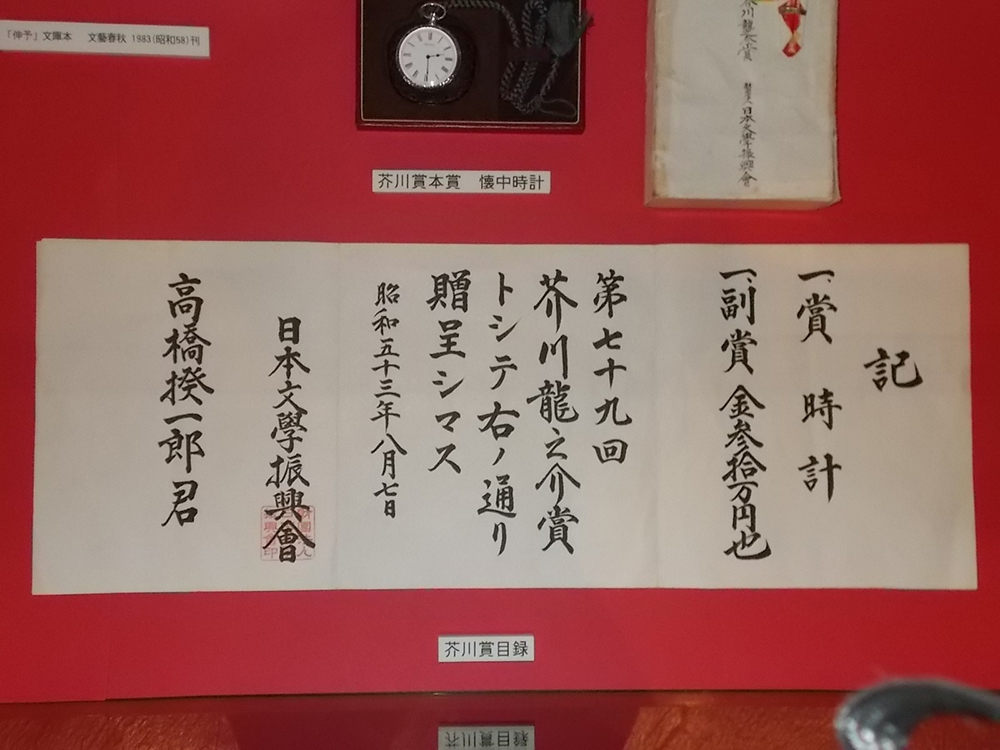 「伸予」文庫本 文藝春秋 1983(昭和58)刊
芥川龍之介賞
財団法人日本文學振興會
芥川賞本賞 懐中時計
記
一、賞 時計
一、副賞 金参拾万円也
第七十九回
芥川龍之介賞
トシテ右ノ通り
贈呈シマス
昭和五十三年八月七日
日本文學振興會
高橋揆一郎君
芥川賞目録